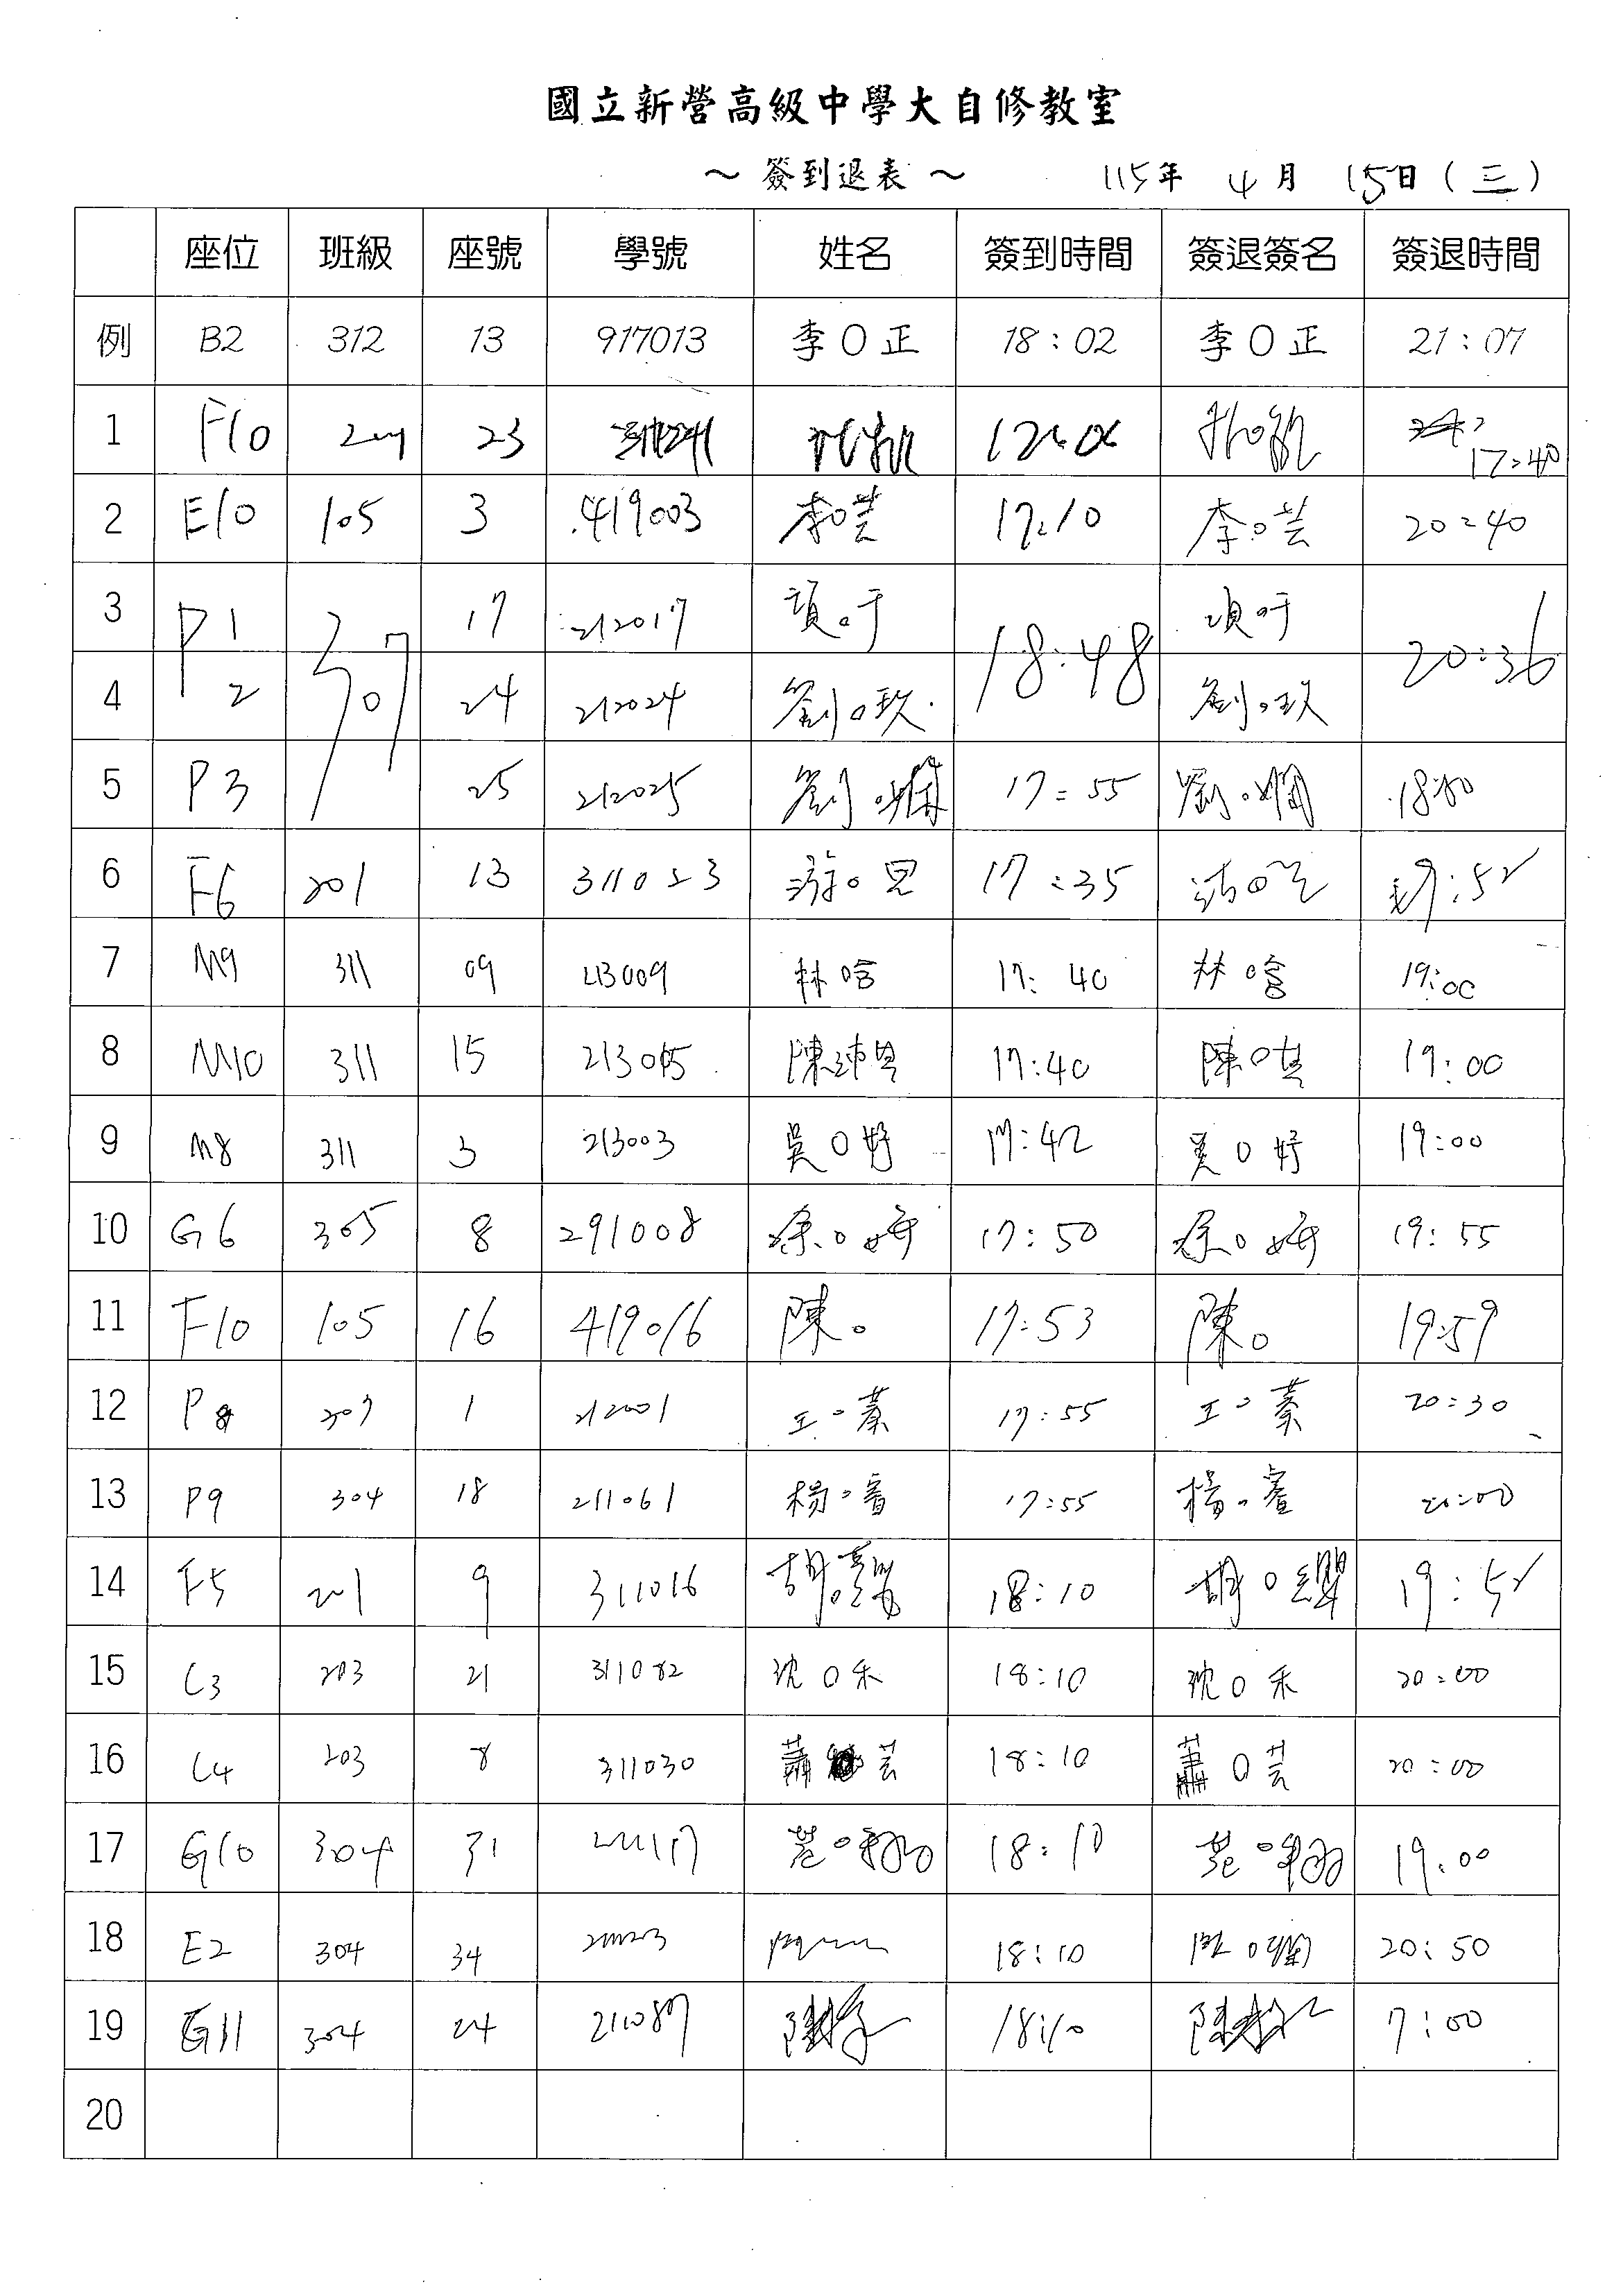 國立新營高級中學大自修教室
～ 簽到退表 ～ 115年 4月 15日 (三)
座位 班級 座號 學號 姓名 簽到時間 簽退簽名 簽退時間
例 B2 312 13 917013 李O正 18:02 李O正 21:07
1 F10 23 17:40
2 E10 105 3 419003 李O芸 17:10 李O芸 20:40
3 P1 307 17 212017 項O于 18:48 項O于 20:36
4 2 24 212024 劉O玖 劉O玖
5 P3 25 212025 劉O嫻 17:55 劉O嫻 18:00
6 F6 201 13 311053 游O恩 17:35 17:52
7 M9 311 09 213009 林O晗 17:40 林O晗 19:00
8 M10 311 15 213015 17:40 陳O其 19:00
9 M8 311 3 213003 吳O妤 17:42 吳O妤 19:00
10 G6 305 8 291008 徐O婷 17:50 徐O婷 19:55
11 F10 105 16 419016 陳O 17:53 陳O 19:59
12 P8 307 1 212001 王O蓁 17:55 王O蓁 20:30
13 P9 304 18 211061 楊O 17:55 楊O 20:00
14 F5 201 9 311016 胡O 18:10 胡O 19:52
15 C3 203 21 311082 沈O禾 18:10 沈O禾 20:00
16 C4 203 8 311030 蕭O芸 18:10 蕭O芸 20:00
17 G10 304 31 18:10 19:00
18 E2 304 34 18:10 20:50
19 G11 304 24 211087 陳 18:10 陳 7:00
20